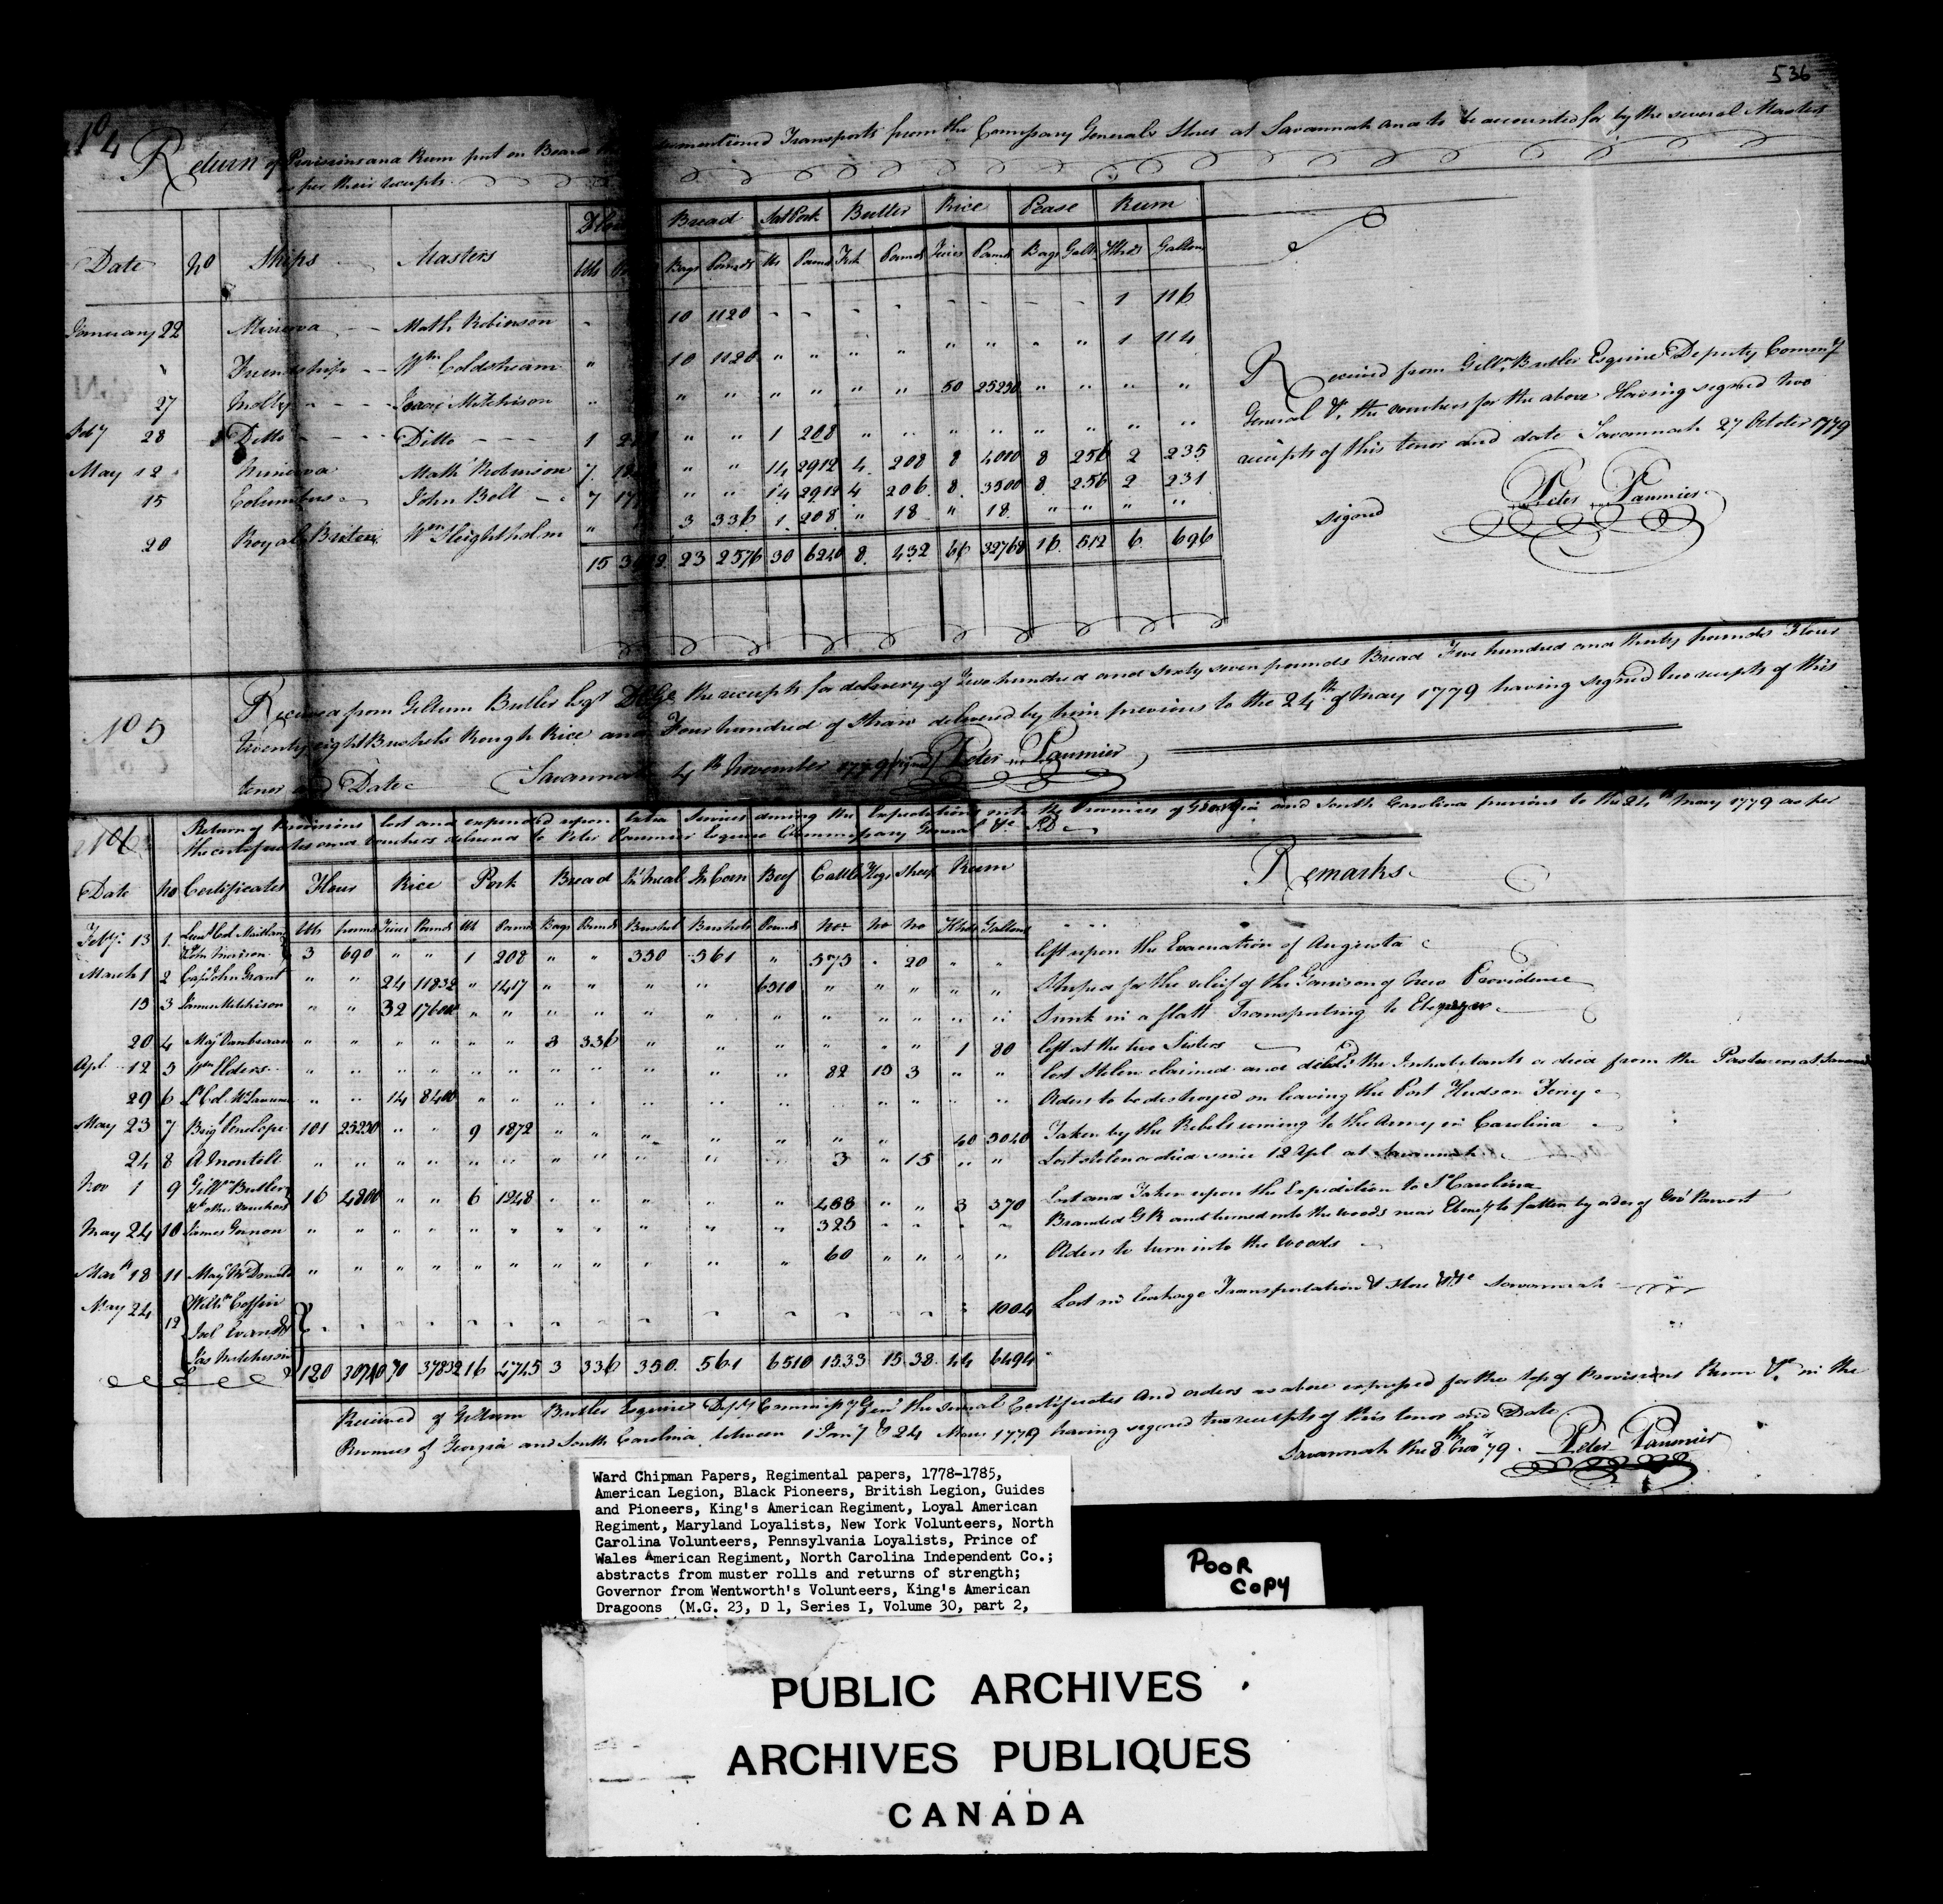 536
No 4 Return of Provisions and Rum put on Board the mentioned Transports from the Comissary Generals Stores at Savannah and to be accounted for by the several Masters
as per their receipts
Flour Bread Salt Pork Butter Rice Pease Rum
Date No Ships Masters bbls Bags Pounds bls Pounds Firk Pounds Tierces Pounds Bags Galls Hhds Gallons
January 22 Minerva Math Robinson " 10 1120 " " " " " " " " 1 116
" Friendship Wm Coldsheam " 10 1120 " " " " " " " " 1 114
27 Molly Isaac Mitchison " " " " " " " 50 25230 " " " "
Feby 28 Ditto Ditto 1 " " 1 208 " " " " " " " "
May 12 Minerva Math Robinson 7 " " 14 2912 4 208 8 4010 8 256 2 235
15 Columbus John Bolt 7 " " 14 2912 4 206 8 3500 8 256 2 231
20 Royal Briton Wm Heightholm " 3 336 1 208 " 18 " 18 " " " "
15 23 2576 30 6240 8 432 66 32768 16 512 6 696
Received from Gillm Butler Esquire Deputy Commy
General &c the vouchers for the above Having signed two
receipts of this tenor and date Savannah 27 October 1779
signed Peter Paumier
No 5 Received from Gillum Butler Esqr the receipts for delivery of Two hundred and sixty seven pounds Bread Five hundred and thirty pounds Flour
Twenty eight Bushels Rough Rice and Four hundred of Straw delivered by him previous to the 24th of May 1779 having signed two receipts of this
tenor and Date Savannah November 1779 signed Peter Paumier
No 6 Return of Provisions lost and expended upon Extra Services during the Expeditions into the Provinces of Georgia and South Carolina previous to the 24th May 1779 as per
the certificates and vouchers delivered to Peter Paumier Esquire Commissary General &c
Date No Certificates Flour Rice Pork Bread In Meal In Corn Beef Cattle Hogs Sheep Rum Remarks
bls pounds Tierces Pounds bls Pounds Bags Pounds Bushel Bushels Pounds No No No Hhds Gallons
Feby 13 1 Lieut Col Maitland
John Morison 3 690 " " 1 208 " " 350 561 " 573 " 20 " " left upon the Evacuation of Augusta
March 1 2 Capt John Grant " " 24 11832 " 1417 " " " " 6510 " " " " " Shiped for the relief of the Garrison of New Providence
13 3 James Mitchison " " 32 17600 " " " " " " " " " " " " Sunk in a flatt Transporting to Ebenezer
20 4 Maj Vanbraam " " " " " " 3 336 " " " " " " 1 80 left at the two Sisters
Apl 12 5 Wm Elders " " " " " " " " " " " 82 15 3 " " lost stolen claimed and deliv'd the Inhabitants or died from the Pastures at Savannah
29 6 Lt Col " " 14 8400 " " " " " " " " " " " " Orders to be destroyed on leaving the Post Hudson Ferry
May 23 7 Brig Penelope 101 25250 " " 9 1872 " " " " " " " " 40 5040 Taken by the Rebels coming to the Army in Carolina
24 8 A Montell " " " " " " " " " " " 3 " 15 " " Lost stolen or died since 12 Apl at Savannah
Nov 1 9 Gillm Butler
& other vouchers 16 4800 " " 6 1248 " " " " " 488 " " 3 370 Lost and Taken upon the Expedition to So Carolina
May 24 10 James Gornon " " " " " " " " " " " 325 " " " " Branded GR and turned into the woods near Ebenr to fatten by order of Genl Prevost
Mar 18 11 Majr McDonald " " " " " " " " " " " 60 " " " " Orders to turn into the woods
May 24 12 Willm Coffin
Joel Evans
Jas Mitchison " " " " " " " " " " " " " " " 1004 Lost in leakage Transportation & Store &c Savannah
120 30740 70 37832 16 4745 3 336 350 561 6510 1533 15 38 44 6494
Received of Gillum Butler Esquire Depy Commissy Genl the several Certificates and orders as above expressed for the loss of Provisions Rum &c in the
Provinces of Georgia and South Carolina between 1 Jany & 24 May 1779 having signed two receipts of this tenor and Date
Savannah the 8th Novr 79. Peter Paumier
Ward Chipman Papers, Regimental papers, 1778-1785,
American Legion, Black Pioneers, British Legion, Guides
and Pioneers, King's American Regiment, Loyal American
Regiment, Maryland Loyalists, New York Volunteers, North
Carolina Volunteers, Pennsylvania Loyalists, Prince of
Wales American Regiment, North Carolina Independent Co.;
abstracts from muster rolls and returns of strength;
Governor from Wentworth's Volunteers, King's American
Dragoons (M.G. 23, D 1, Series I, Volume 30, part 2,
POOR
COPY
PUBLIC ARCHIVES
ARCHIVES PUBLIQUES
CANADA